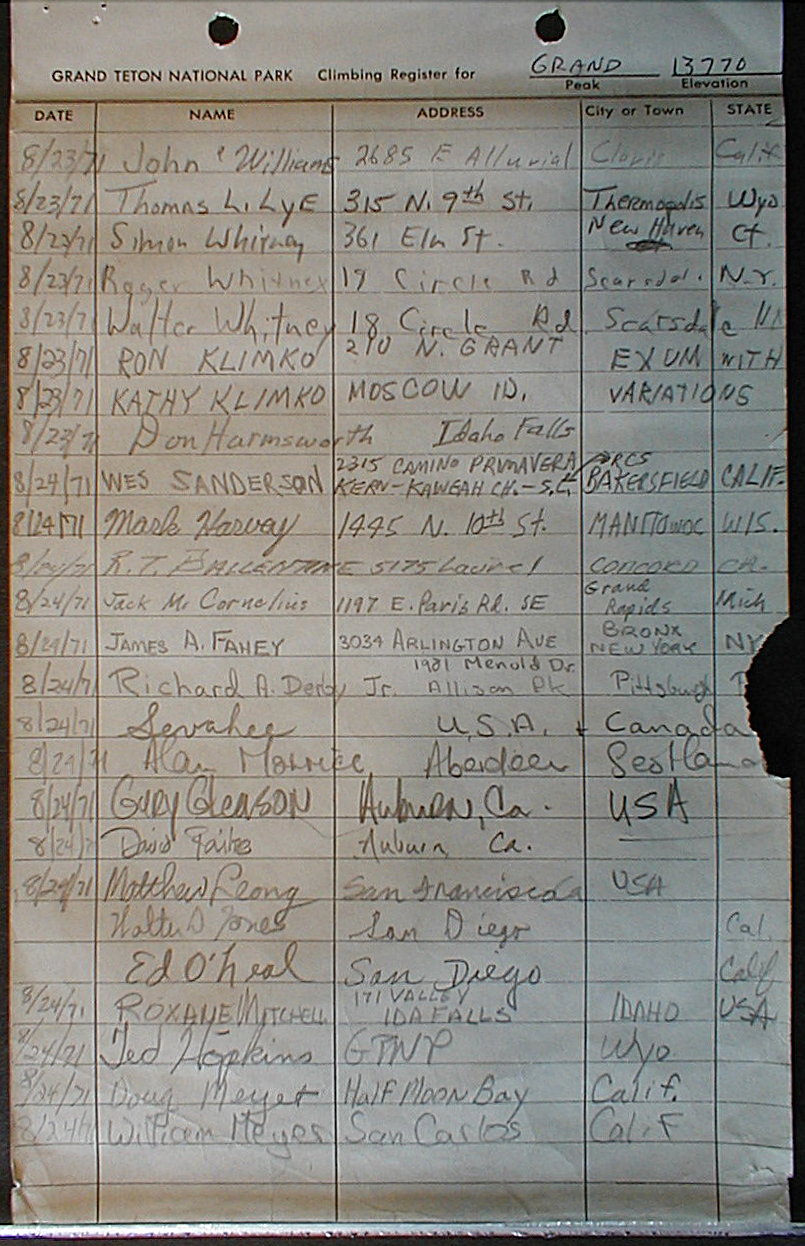 GRAND TETON NATIONAL PARK Climbing Register for GRAND 13770
Peak Elevation
DATE NAME ADDRESS City or Town STATE
8/23/71 John Williams 2685 E Alluvial Clovis Calif
8/23/71 Thomas L. Lye 315 N. 9th St. Thermopolis Wyo
8/23/71 Simon Whitney 361 Elm St. New Haven Ct.
8/23/71 Roger Whitney 17 Circle Rd Scarsdale N.Y.
8/23/71 Walter Whitney 18 Circle Rd. Scarsdale
8/23/71 RON KLIMKO 210 N. GRANT EXUM WITH
8/23/71 KATHY KLIMKO MOSCOW ID. VARIATIONS
8/23/71 Don Harmsworth Idaho Falls
2315 CAMINO PRIMAVERA RCS
8/24/71 WES SANDERSON KERN-KAWEAH CH.-S.C. BAKERSFIELD CALIF.
8/24/71 Mark Harvey 1445 N. 10th St. MANITOWOC WIS.
8/24/71 R.T. BALLENTINE 5175 Laurel CONCORD CA.
8/24/71 Jack M. Cornelius 1197 E. Paris Rd. SE Grand Rapids Mich
8/24/71 JAMES A. FAHEY 3034 ARLINGTON AVE BRONX NEW YORK NY
1981 Menold Dr.
8/24/71 Richard A. Derby Jr. Allison Pk Pittsburgh
8/24/71 U.S.A. + Canada
8/24/71 Alan Aberdeen Scotland
8/24/71 Gary Gleason Auburn, Ca. USA
8/24/71 David Auburn, Ca.
8/24/71 Matthew Leong San Francisco Ca USA
Walter D Jones San Diego Cal.
Ed O'Neal San Diego Calif
171 VALLEY
8/24/71 ROXANE MITCHELL IDA FALLS IDAHO USA
8/24/71 Ted Hopkins GTNP Wyo
8/24/71 Doug Meyer Half Moon Bay Calif.
8/24/71 William Meyer San Carlos Calif